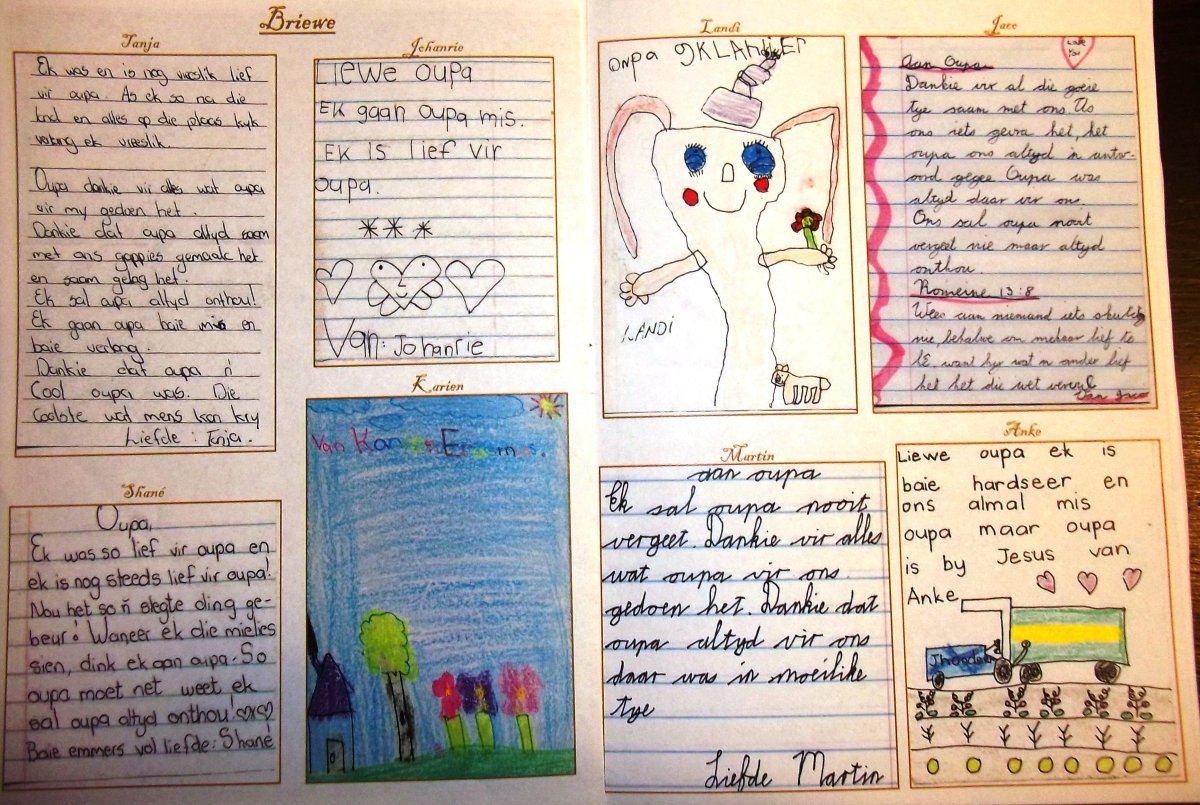 Briewe
Tanja
Ek was en is nog vreeslik lief
vir oupa. As ek so na die
land en alles op die plaas kyk
verlang ek vreeslik.
Oupa dankie vir alles wat oupa
vir my gedoen het.
Dankie dat oupa altyd saam
met ons grappies gemaak het
en saam gelag het.
Ek sal oupa altyd onthou!
Ek gaan oupa baie mis en
baie verlang.
Dankie dat oupa ń
Cool oupa was. Die
Coolste wat mens kan kry
Liefde : Tanja.
Shané
Oupa,
Ek was so lief vir oupa en
ek is nog steeds lief vir oupa!
Nou het so ń slegte ding ge-
beur! Waneer ek die mielies
sien, dink ek aan oupa. So
oupa moet net weet ek
sal oupa altyd onthou!
Baie emmers vol liefde: Shané
Johanrie
Liewe oupa
Ek gaan oupa mis.
Ek is lief vir
oupa.
Van: Johanrie
Karien
Van Karien Erasmus.
Landi
oupa
LANDI
Jaco
Love
You
Aan Oupa
Dankie vir al die goeie
tye saam met ons. As
ons iets gevra het, het
oupa ons altyd 'n antw-
oord gegee Oupa was
altyd daar vir ons.
Ons sal oupa nooit
vergeet nie maar altyd
onthou.
Romeine 13:8
Wees aan niemand iets skuldig
nie, behalwe om mekaar lief te
hê. want hy wat 'n ander lief
het het die wet vervul
Van Jaco
Martin
aan oupa
Ek sal oupa nooit
vergeet. Dankie vir alles
wat oupa vir ons
gedoen het. Dankie dat
oupa altyd vir ons
daar was in moeilike
tye
Liefde Martin
Anke
Liewe oupa ek is
baie hardseer en
ons almal mis
oupa maar oupa
is by Jesus van
Anke